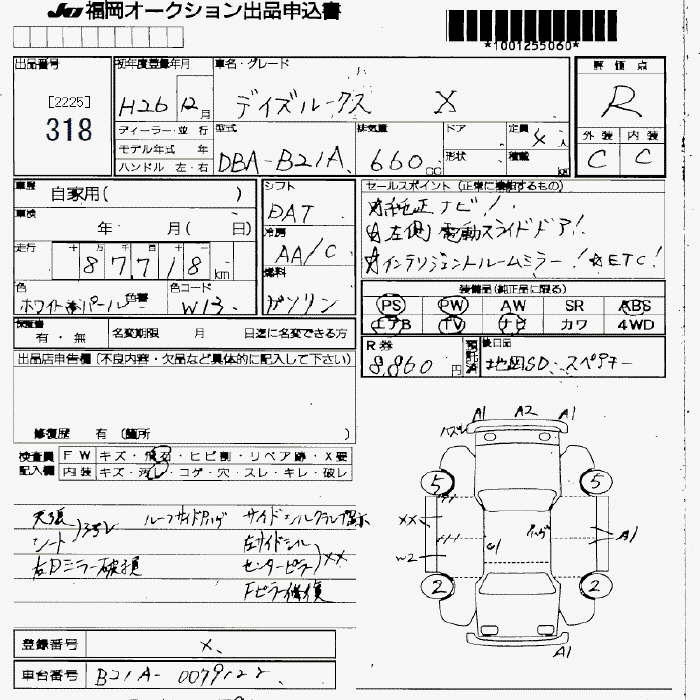 JU 福岡オークション出品申込書
*1001255060*
出品番号
[2225]
318
初年度登録年月
H26 12月
車名・グレード
デイズルークス X
評価点
R
外装 内装
C C
ディーラー・並行
モデル年式 年
ハンドル 左・右
型式
DBA-B21A
排気量
660 CC
ドア
形状
定員 4 人
積載
車歴
自家用( )
車検
年 月( 日)
走行
十 万 千 百 十 一
87718 km
色
ホワイトパール
色替
色コード
W13
シフト
DAT
冷房
AA/C
燃料
ガソリン
セールスポイント (正常に機能するもの)
☆純正ナビ!
☆左側電動スライドドア!
☆インテリジェントルームミラー! ☆ETC!
装備品(純正品に限る)
PS PW AW SR ABS
エアB TV ナビ カワ 4WD
保証書
有・無
名変期限 月 日迄に名変できる方
R券
8,860円
預託済
後日品
地図SD、スペアキー
出品店申告欄 (不良内容・欠品など具体的に記入して下さい)
修復歴 有 (箇所 )
検査員記入欄
FW キズ・飛石・ヒビ割・リペア跡・X要
内装 キズ・汚レ・コゲ・穴・スレ・キレ・破レ
天張
シート
ヨゴレ
右Dミラー破損
ルーフサイド
サイドシルクランプ
左サイドシル
センターピラー
××
Fピラー修復
A1 A2 A1
5 5
××
W2
A1
2 2
A1
登録番号 ×
車台番号 B21A-0079122